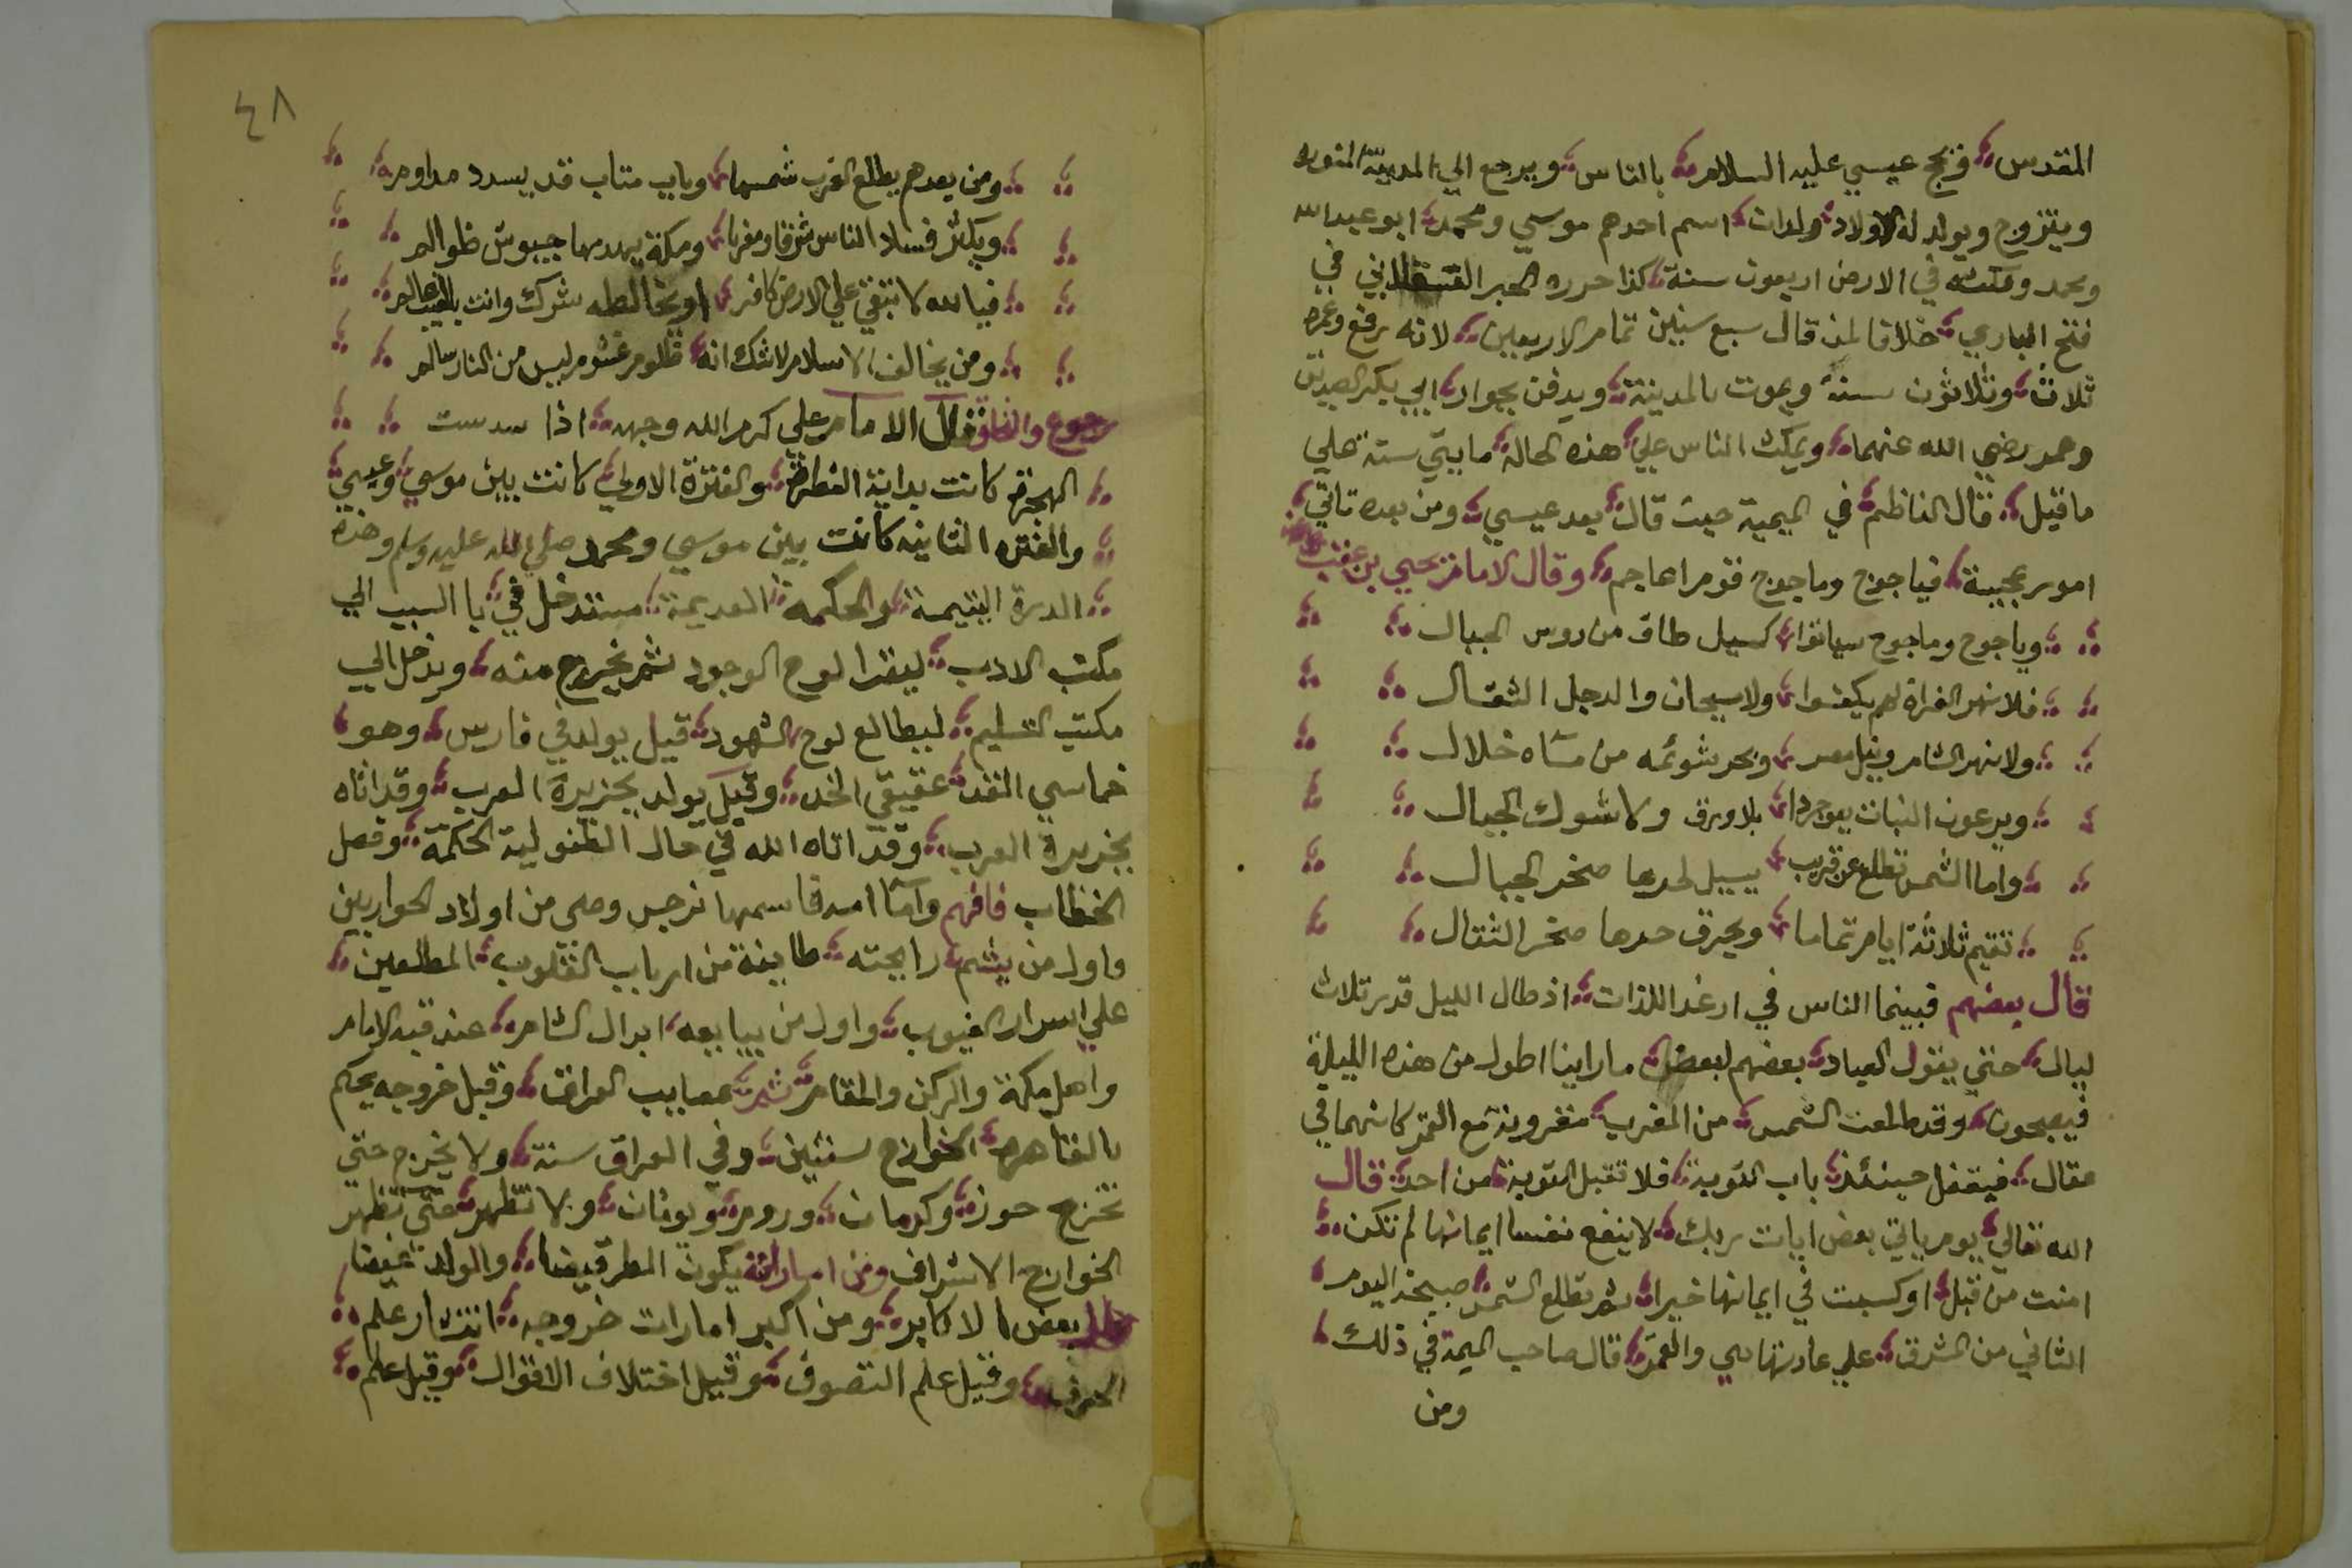 المقدس فيحج عيسي عليه السلام بالناس ويرجع الي المدينة المنوره
ويتزوج ويولد له الاولاد ولدان اسم احدهم موسي ومحمد ابو عبد الله
ومحمد ومكثه في الارض اربعون سنة كذا حرره الحبر القسطلاني في
فتح الباري خلافا لمن قال سبع سنين تمام الاربعين لانه رفع وعمره
ثلاث وثلاثون سنة ويموت بالمدينة ويدفن بجوار ابي بكر الصديق
وعمر رضي الله عنهما ويمكث الناس علي هذه الحالة مايتي سنة علي
ما قيل قال الناظم في الميمية حيث قال بعد عيسي ومن بعده تاتي
امور عجيبة فياجوج وماجوج قوم اعاجم وقال الامام يحي بن عقب
وياجوج وماجوج سياتوا كسيل طاف من روس الجبال
فلا نهر الفراة لهم يكفوا ولا سيحان والدجل الثقال
ولا نهر الشام ونيل مصر وبحر شوئمه من مساه خلال
ويرعون النبات يعوجردا بلا ورق ولا شوك الجبال
واما الشمس تطلع عن قريب يسيل لحرها صخر الجبال
تقيم ثلاثة ايام تماما ويحرق حرها صخر الثقال
قال بعضهم فبينما الناس في ارغد اللذات اذ طال الليل قدر ثلاث
ليال حتي يقول العباد بعضهم لبعض ما راينا اطول من هذه الليلة
فيصبحون وقد طلعت الشمس من المغرب مقرونة مع القمر كانهما في
عقال فيقفل حينئذ باب التوبة فلا تقبل التوبة من احد قال
الله تعالي يوم ياتي بعض ايات ربك لا ينفع نفسا ايمانها لم تكن
امنت من قبل او كسبت في ايمانها خيرا ثم تطلع الشمس صبيحة اليوم
الثاني من المشرق علي عادتها هي والقمر قال صاحب الميمة في ذلك
ومن
٤٨
ومن بعدهم يطلع الغرب شمسها وباب متاب قد يسدد مداوم
ويكثر فساد الناس شرقا ومغربا ومكة يهدمها جيوش ظوالم
فيا الله لا تبقي علي الارض كافر او يخالطه شرك وانت بالغيب عالم
ومن يخالف الاسلام لا شك انه ظلوم غشوم ليس من النار سالم
رجوع قال الامام علي كرم الله وجهه اذا سدست
الهجرة كانت بداية الفطرة والفترة الاولي كانت بين موسي وعيسي
والفتره الثانيه كانت بين موسي ومحمد صلي الله عليه وسلم وهذه
الدرة اليتيمة والحكمه القديمة ستدخل في با السبب الي
مكتب الادب ليقرا لوح الوجود ثم يخرج منه ويدخل الي
مكتب التسليم ليطالع لوح الشهود قيل يولد في فارس وهو
خماسي القد عقيقي الخد وقيل يولد بجزيرة العرب وقد اتاه
بجزيرة العرب وقد اتاه الله في حال الطفولية الحكمة وفصل
الخطاب فافهم واما امه فاسمها نرجس وهي من اولاد الحواريين
واول من يشم رايحته طايفة من ارباب القلوب المطلعين
علي اسرار الغيوب واول من يبايعه ابدال الشام عند قبة الامام
واهل مكة والركن والمقام ثم عصايب العراق وقبل خروجه يحكم
بالقاهرة الخوارج سنتين وفي العراق سنة ولا يخرج حتي
تخرج حوزه وكرمان وروم ويونان ولا تظهر حتي تظهر
الخوارج الاشراف ومن اماراته يكون المطر قيضا والولد غيضا
قال بعض الاكابر ومن اكبر امارات خروجه انتشار علم
الحرف وقيل علم التصوف وقيل اختلاف الاقوال وقيل علم